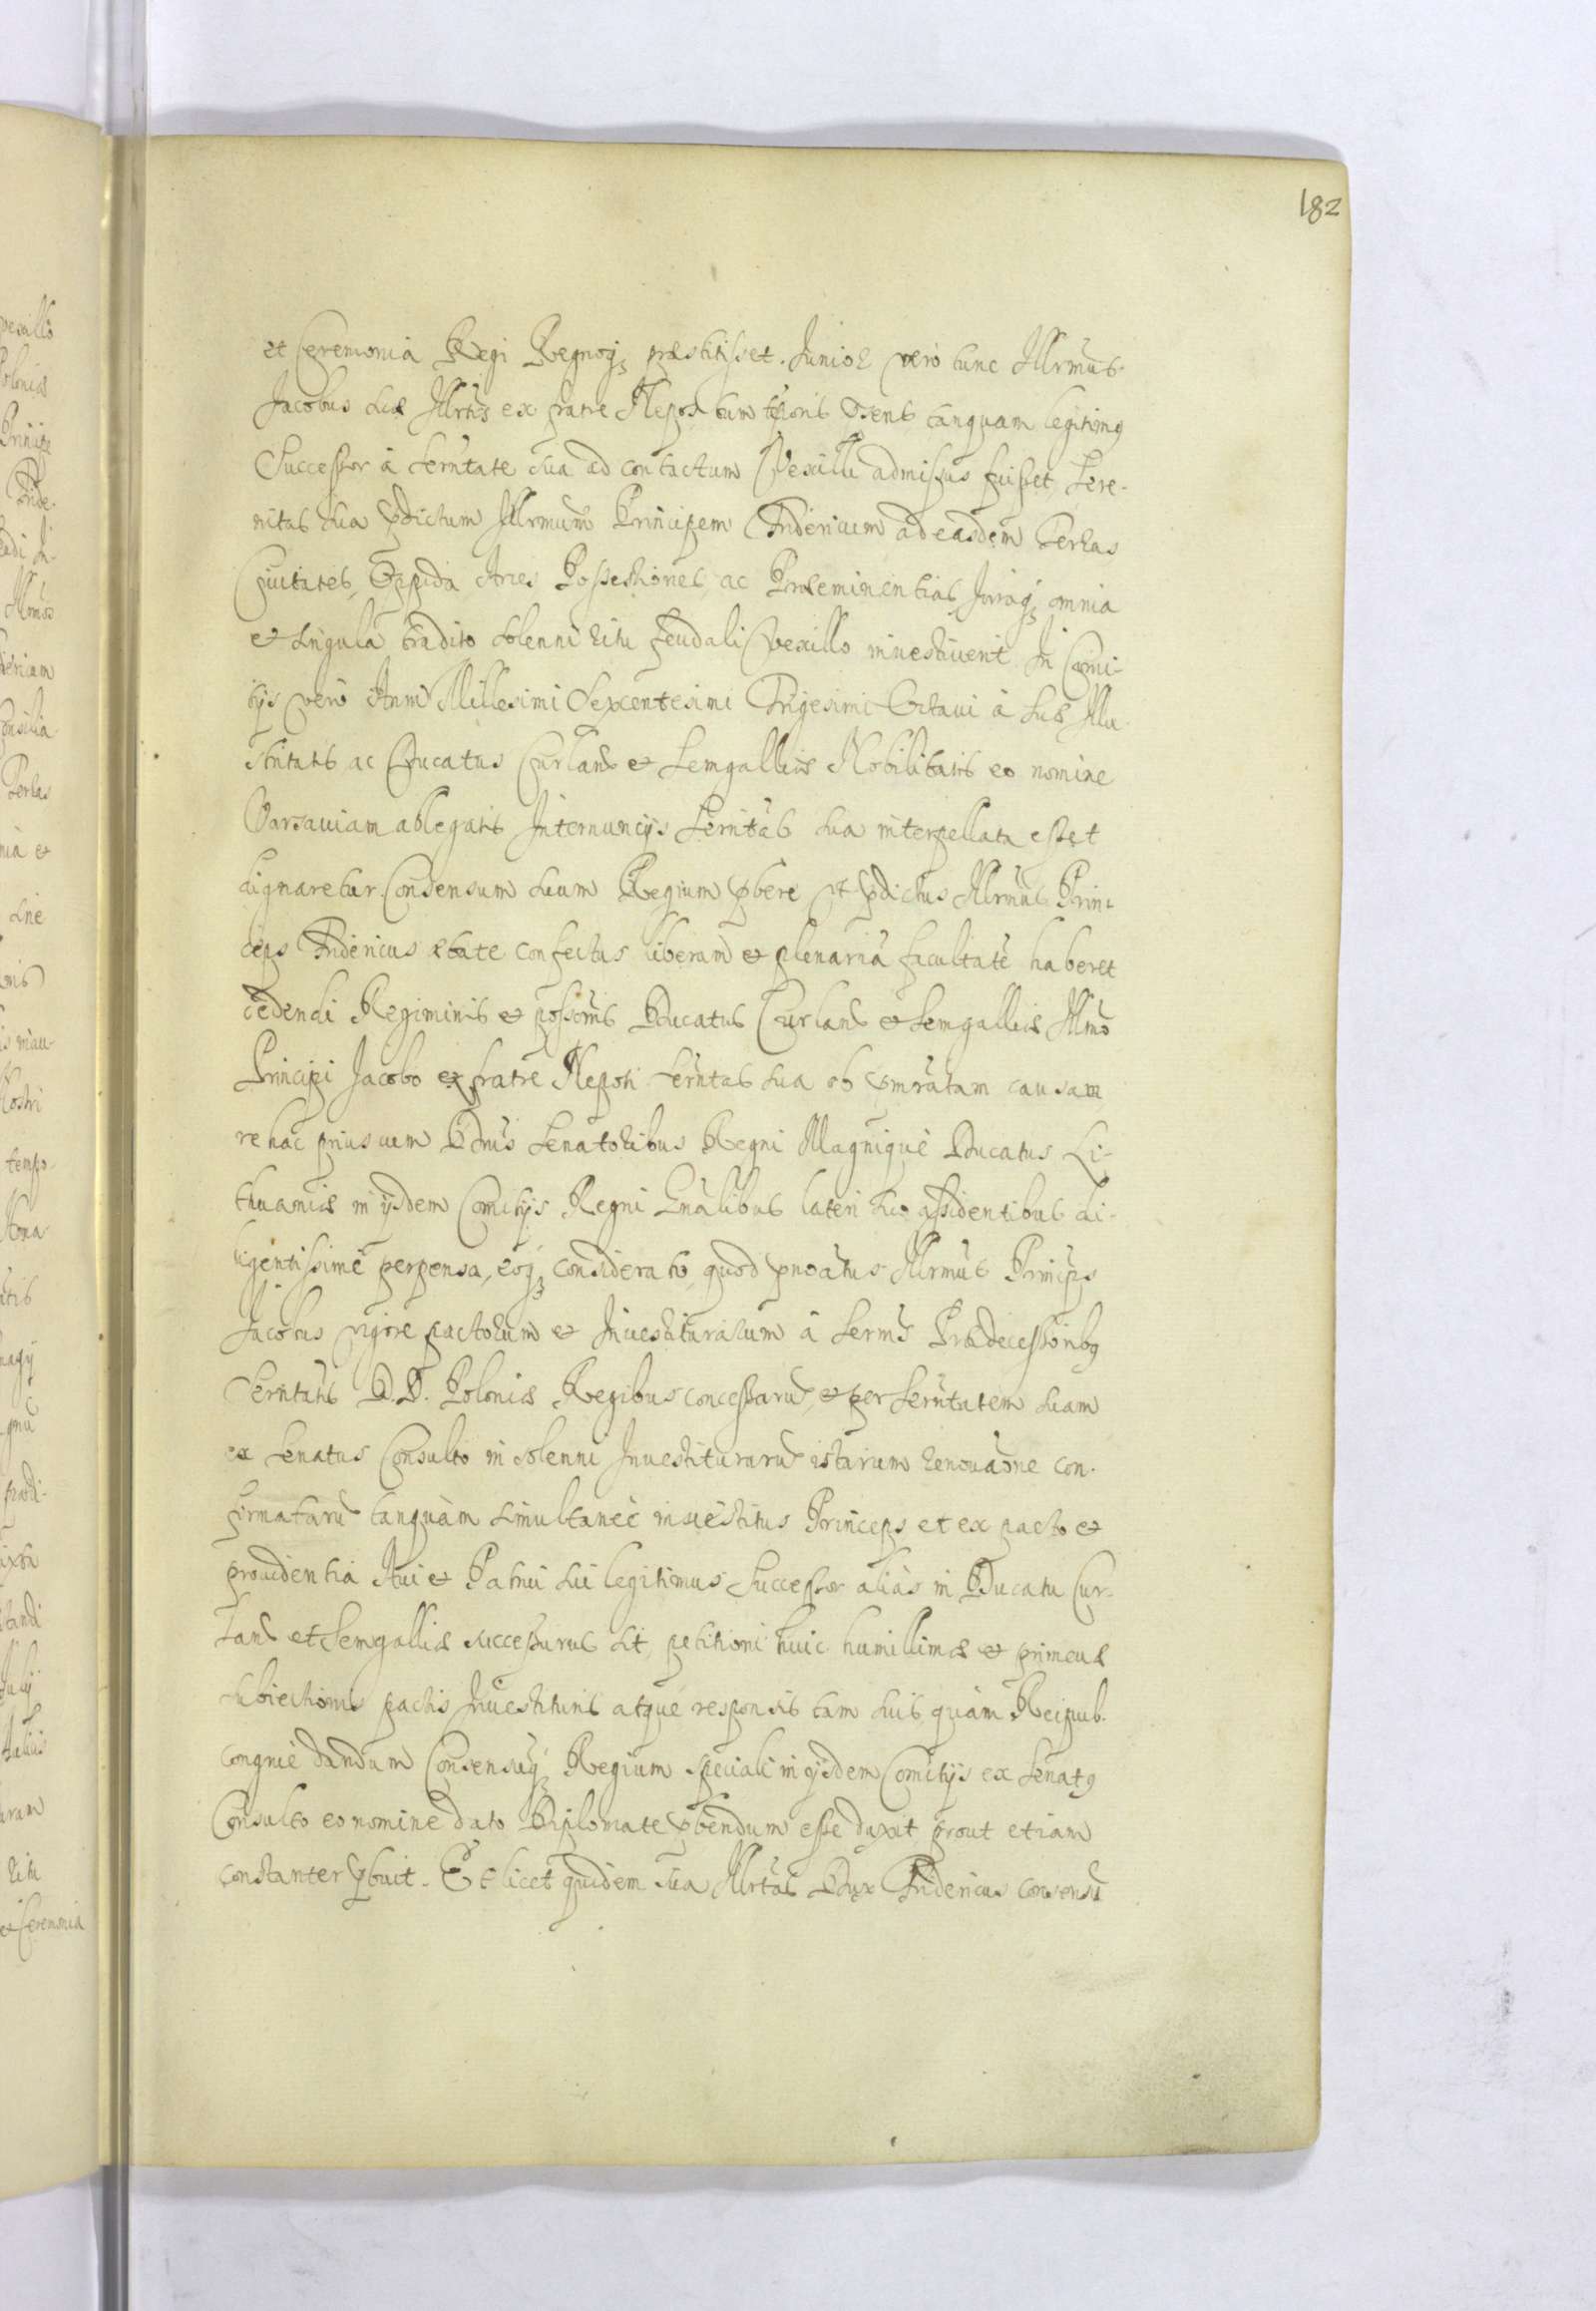 182
et Ceremonia Regi Regnoq; præstitisset. Junior vero tunc Illrmus
Jacobus suæ Illrtis ex fratre Nepos tum tporis tanquam legitimg
Successor à Serntate sua ad contactum Vexilli admissus fuisset, Sere-
nitas sua pdictum Illrmum Principem Fridericum ad easdem Terras
Ciuitates, Oppida Arces Possessiones, ac Præeminentias Juraq; omnia
et singula tradito solenni ritu feudali Vexillo inuestiuerit. In Comi-
tijs vero Anni Millesimi Sexcentesimi Trigesimi Octaui à suæ Illu-
stritatis ac Ducatus Curland et Semgalliæ Nobilitatis eo nomine
Varsauiam ablegatis Internuncijs Serntas sua interpellata esset
dignaretur Consensum suum Regium pbere vt pdictus Illrmus Prin-
ceps Fridericus ætate confectus liberam et plenariã facultatẽ haberet
cedendi Regiminis et possonis Ducatus Curland et Semgalliæ Illmo
Principi Jacobo ex fratre Nepoti Serntas sua ob causam
re hac prius cum Senatoribus Regni Magnique Ducatus Li-
thuaniæ in ijsdem Comitijs Regni Gnalibus lateri suo assidentibus di-
ligentissime perpensa, eoq; considerato, quod pnoatus Illrmus Princeps
Jacobus vigore pactorum et Inuestiturarum à Sermis Prædecessoribg
Serntatis D. D. Poloniæ Regibus concessaru, et per Serntatem suam
ex Senatus Consulto in solenni Inuestituraru istarum renouaone con-
firmataru tanquàm simultaneè inuestitus Princeps et ex pacto et
prouidentia Aui et Patrui sui legitimus Successor aliàs in Ducatu Cur-
land et Semgalliæ successurus sit, petitioni huic humillimæ et
subiectionis pactis Inuestituris atque responsis tam suis quàm Reipub.
congruè dandum Consensuq; Regium speciali in ijsdem Comitijs ex Senatg
Consulto eo nomine dato Diplomate pbendum esse duxit prout etiam
constanter pbuit. Et licet quidem sua Illrtas Dux Fridericus consensu